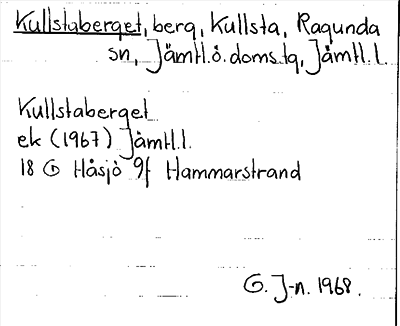 Kullstaberget, berg, Kullsta, Ragunda
sn, Jämtl.ö.doms.tg, Jämtl.l.
Kullstaberget
ek (1967) Jämtl.l.
18 G Håsjö 9f Hammarstrand
G. J-n. 1968.